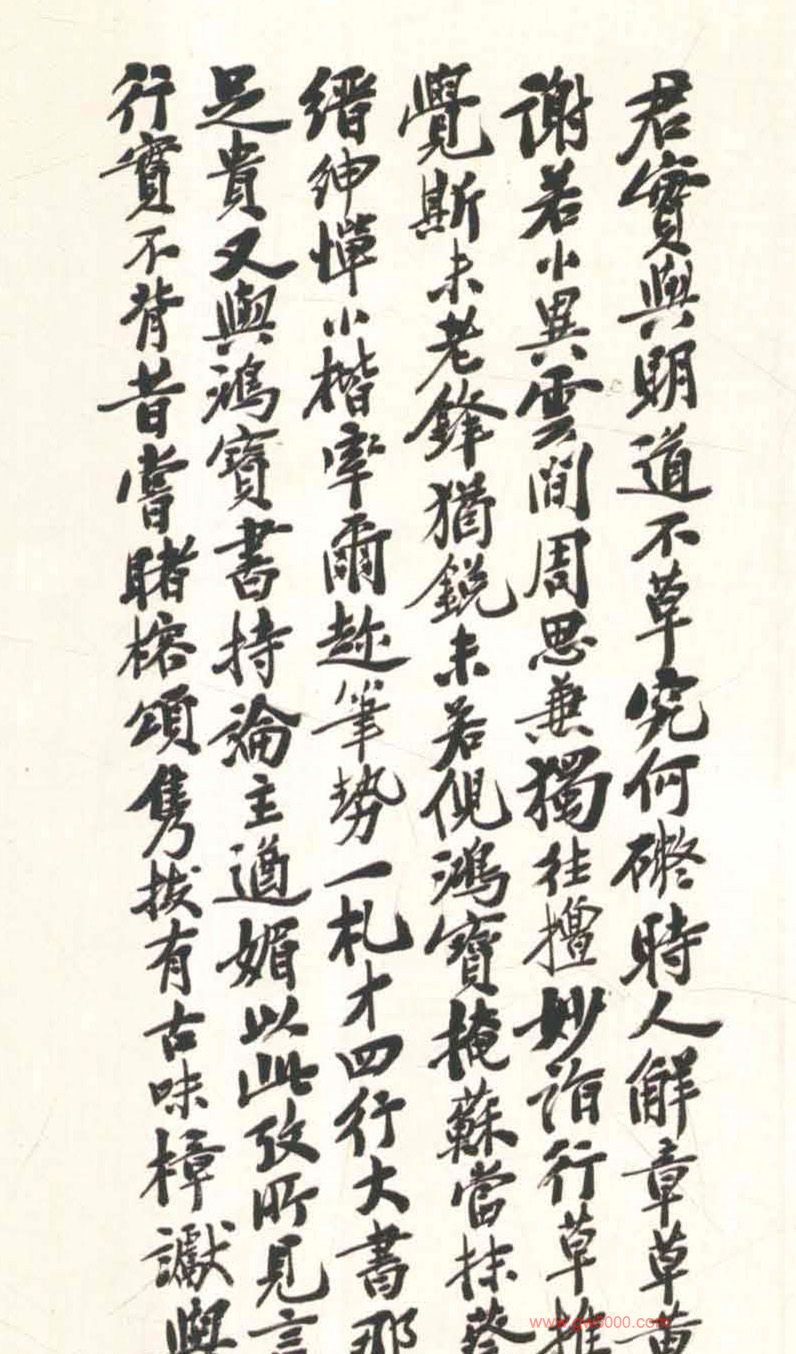 君實與明道不草究何礙時人解章草黄
謝若小異雲間周思兼獨往擅妙詣行草推
覺斯未老鋒猶鋭未若倪鴻寶掩蘇當抹蔡
縉紳憚小楷率爾趂筆勢一札才四行大書那
足貴又與鴻寶書持論主遒媚以此攷所見言
行實不背昔嘗睹榕頌雋拔有古味樟讞與
www.gw5000.com